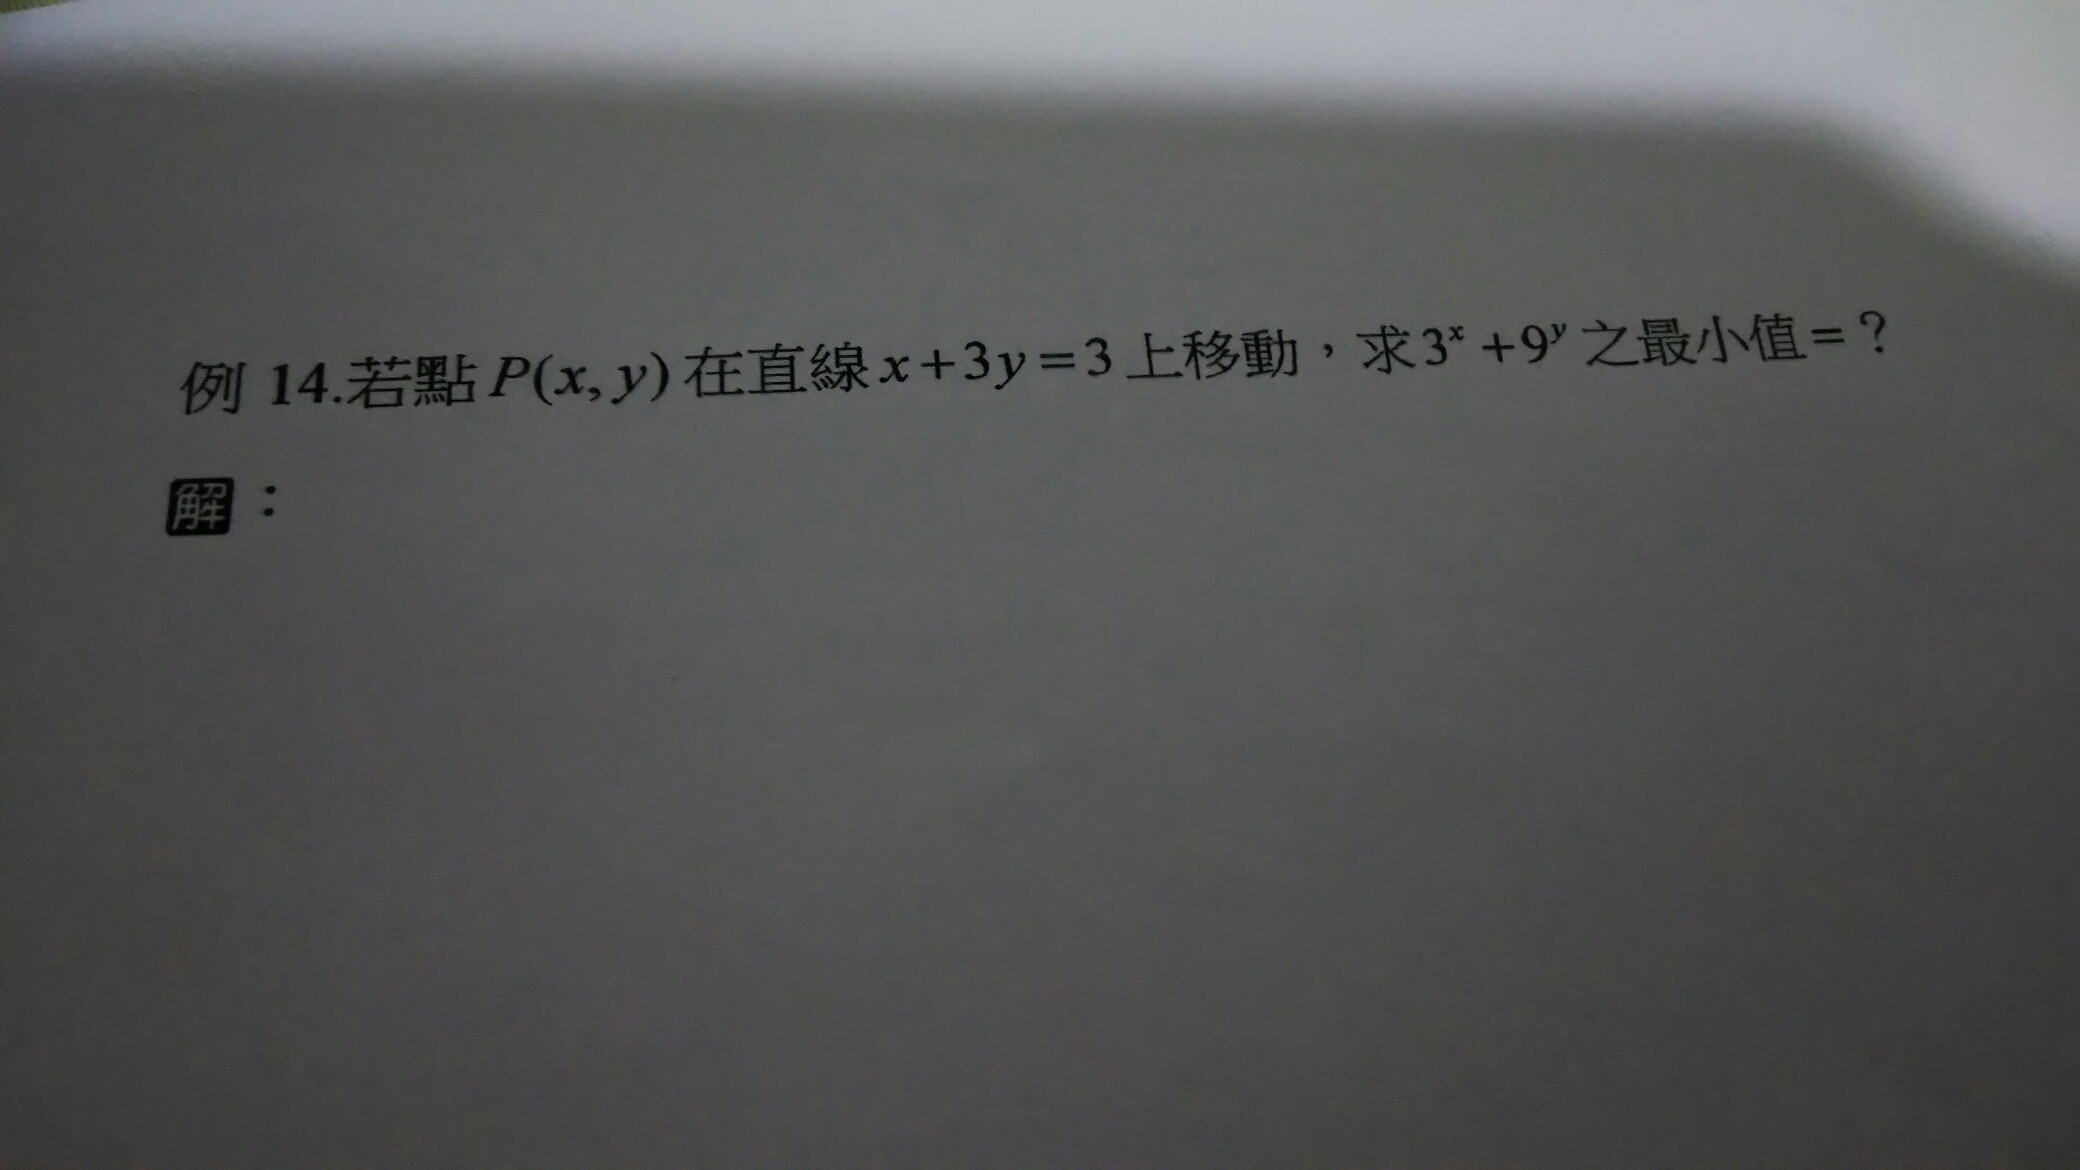 例 14.若點 P(x, y) 在直線 x+3y=3 上移動，求 3ˣ +9ʸ 之最小值=？
解：